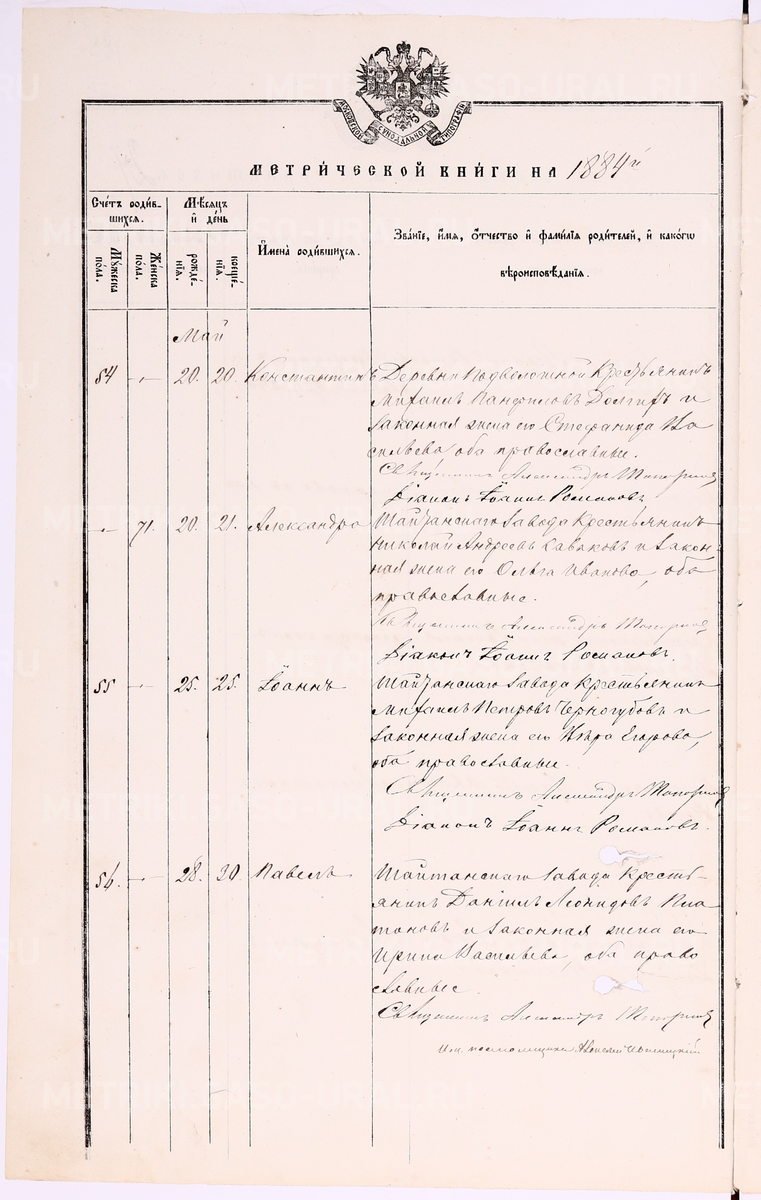 МОСКОВСКОЙ СѴНОДАЛЬНОЙ ТИПОГРАФІИ
МЕТРИ́ЧЕСКОЙ КНИ́ГИ НА 1884й
Сче́тъ роди́вшихся.
Мѣсяцъ и҆ де́нь
И҆мена̀ роди́вшихся.
Зва́нїе, и҆́мѧ, ѻ҆́тчество и҆ фами́лїѧ роди́телей, и҆ како́гѡ вѣроисповѣ́данїѧ.
Мꙋ́жеска по́ла.
Же́нска по́ла.
рожде́нїѧ.
креще́нїѧ.
Май
54 -"- 20. 20. Константинъ Деревни Подволошной Крестьянинъ
Михаилъ Панфиловъ Долгихъ и
законная жена его Стефанида Ва
сильева, оба православные.
Священникъ Александръ Топорковъ
Діаконъ Іоаннъ Романовъ.
-"- 71. 20. 21. Александра Шайтанскаго завода Крестьянинъ
Николай Андреевъ и закон-
ная жена его Ольга Иванова, оба
православные.
Священникъ Александръ Топорковъ
Діаконъ Іоаннъ Романовъ.
55 -"- 25. 25. Іоаннъ Шайтанскаго завода Крестьянинъ
Михаилъ Петровъ Черногубовъ и
законная жена его Егорова,
оба православные.
Священникъ Александръ Топорковъ
Діаконъ Іоаннъ Романовъ.
56. -"- 28. 30. Павелъ Шайтанскаго завода Кресть-
янинъ Даніилъ Леонидовъ Пла
тоновъ и законная жена его
Ирина Васильева, оба право
славные
Священникъ Александръ Топорковъ
И. д. псаломщика Алексей